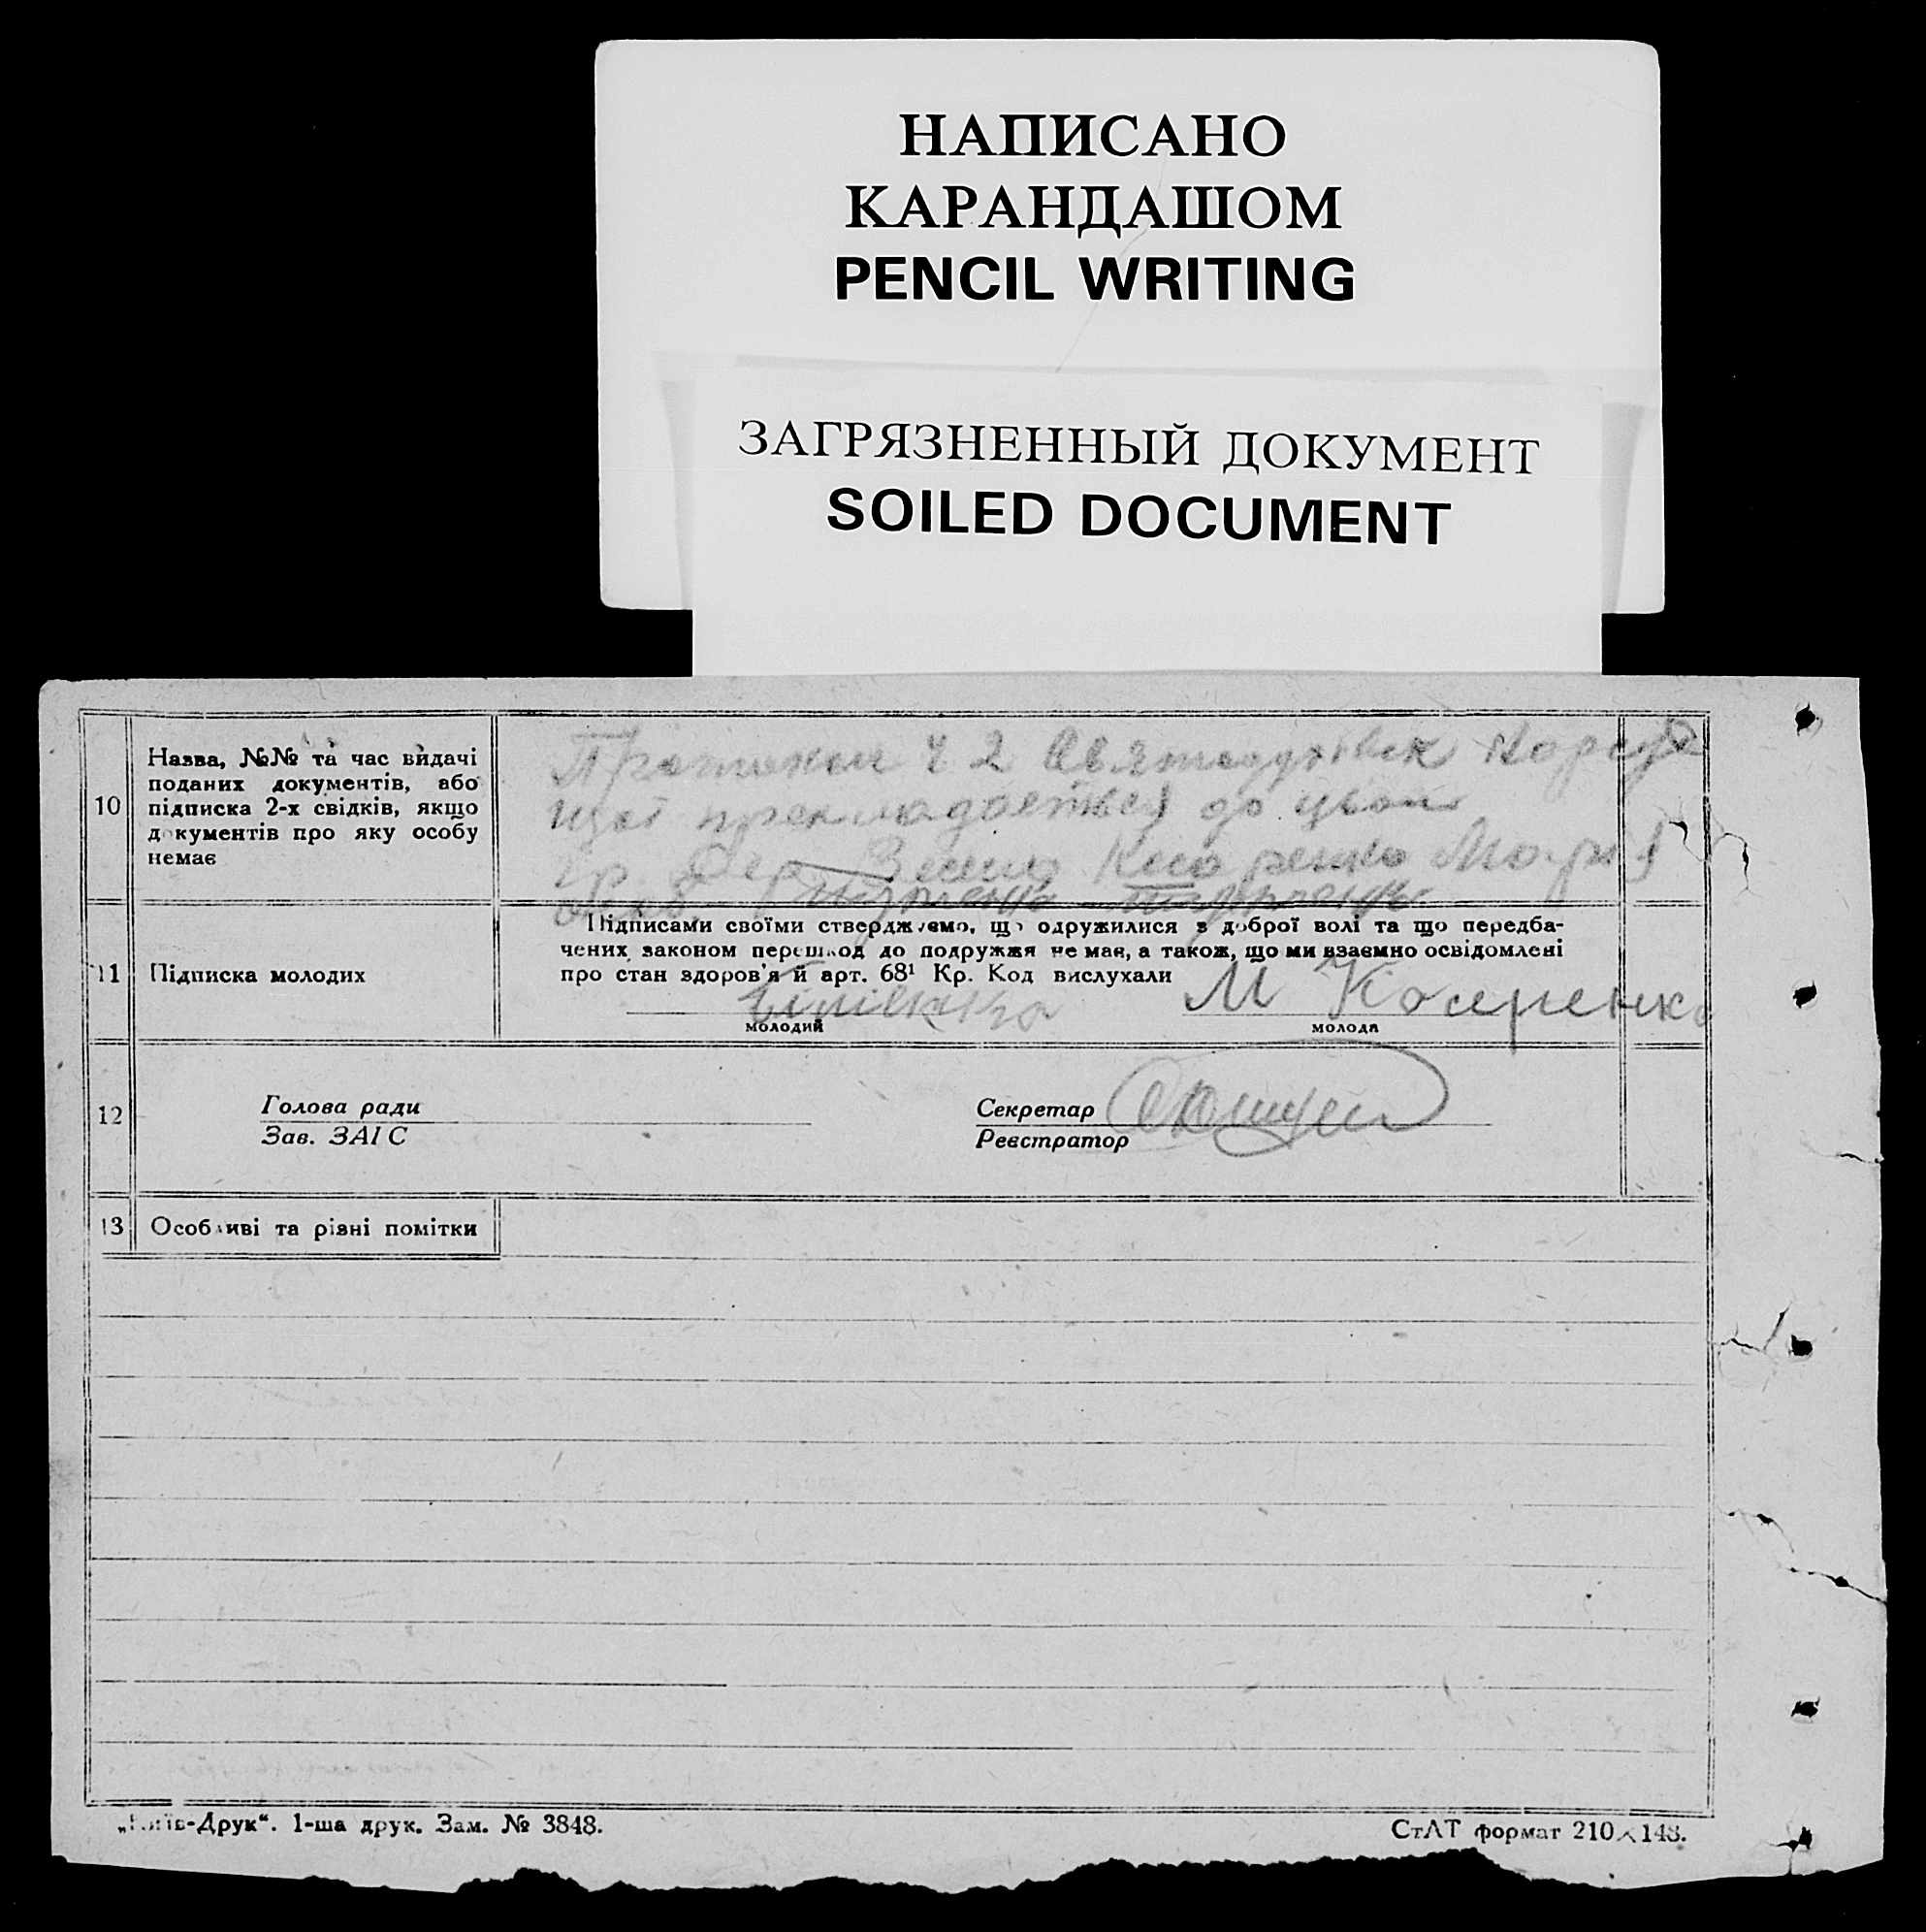 НАПИСАНО
КАРАНДАШОМ
PENCIL WRITING
ЗАГРЯЗНЕННЫЙ ДОКУМЕНТ
SOILED DOCUMENT
10
Назва, №№ та час видачі
поданих документів, або
підписка 2-х свідків, якщо
документів про яку особу
немає
Протокол Ч 2
до цього
гр. Марія
11
Підписка молодих
Підписами своїми стверджуємо, що одружилися з доброї волі та що передба-
чених законом перешкод до подружжя не має, а також, що ми взаємно освідомлені
про стан здоров'я й арт. 68¹ Кр. Код вислухали
М
молодий
молода
12
Голова ради
Зав. ЗАГС
Секретар
Реєстратор
13
Особливі та різні помітки
„Київ-Друк“. 1-ша друк. Зам. № 3848.
СтАТ формат 210×148.